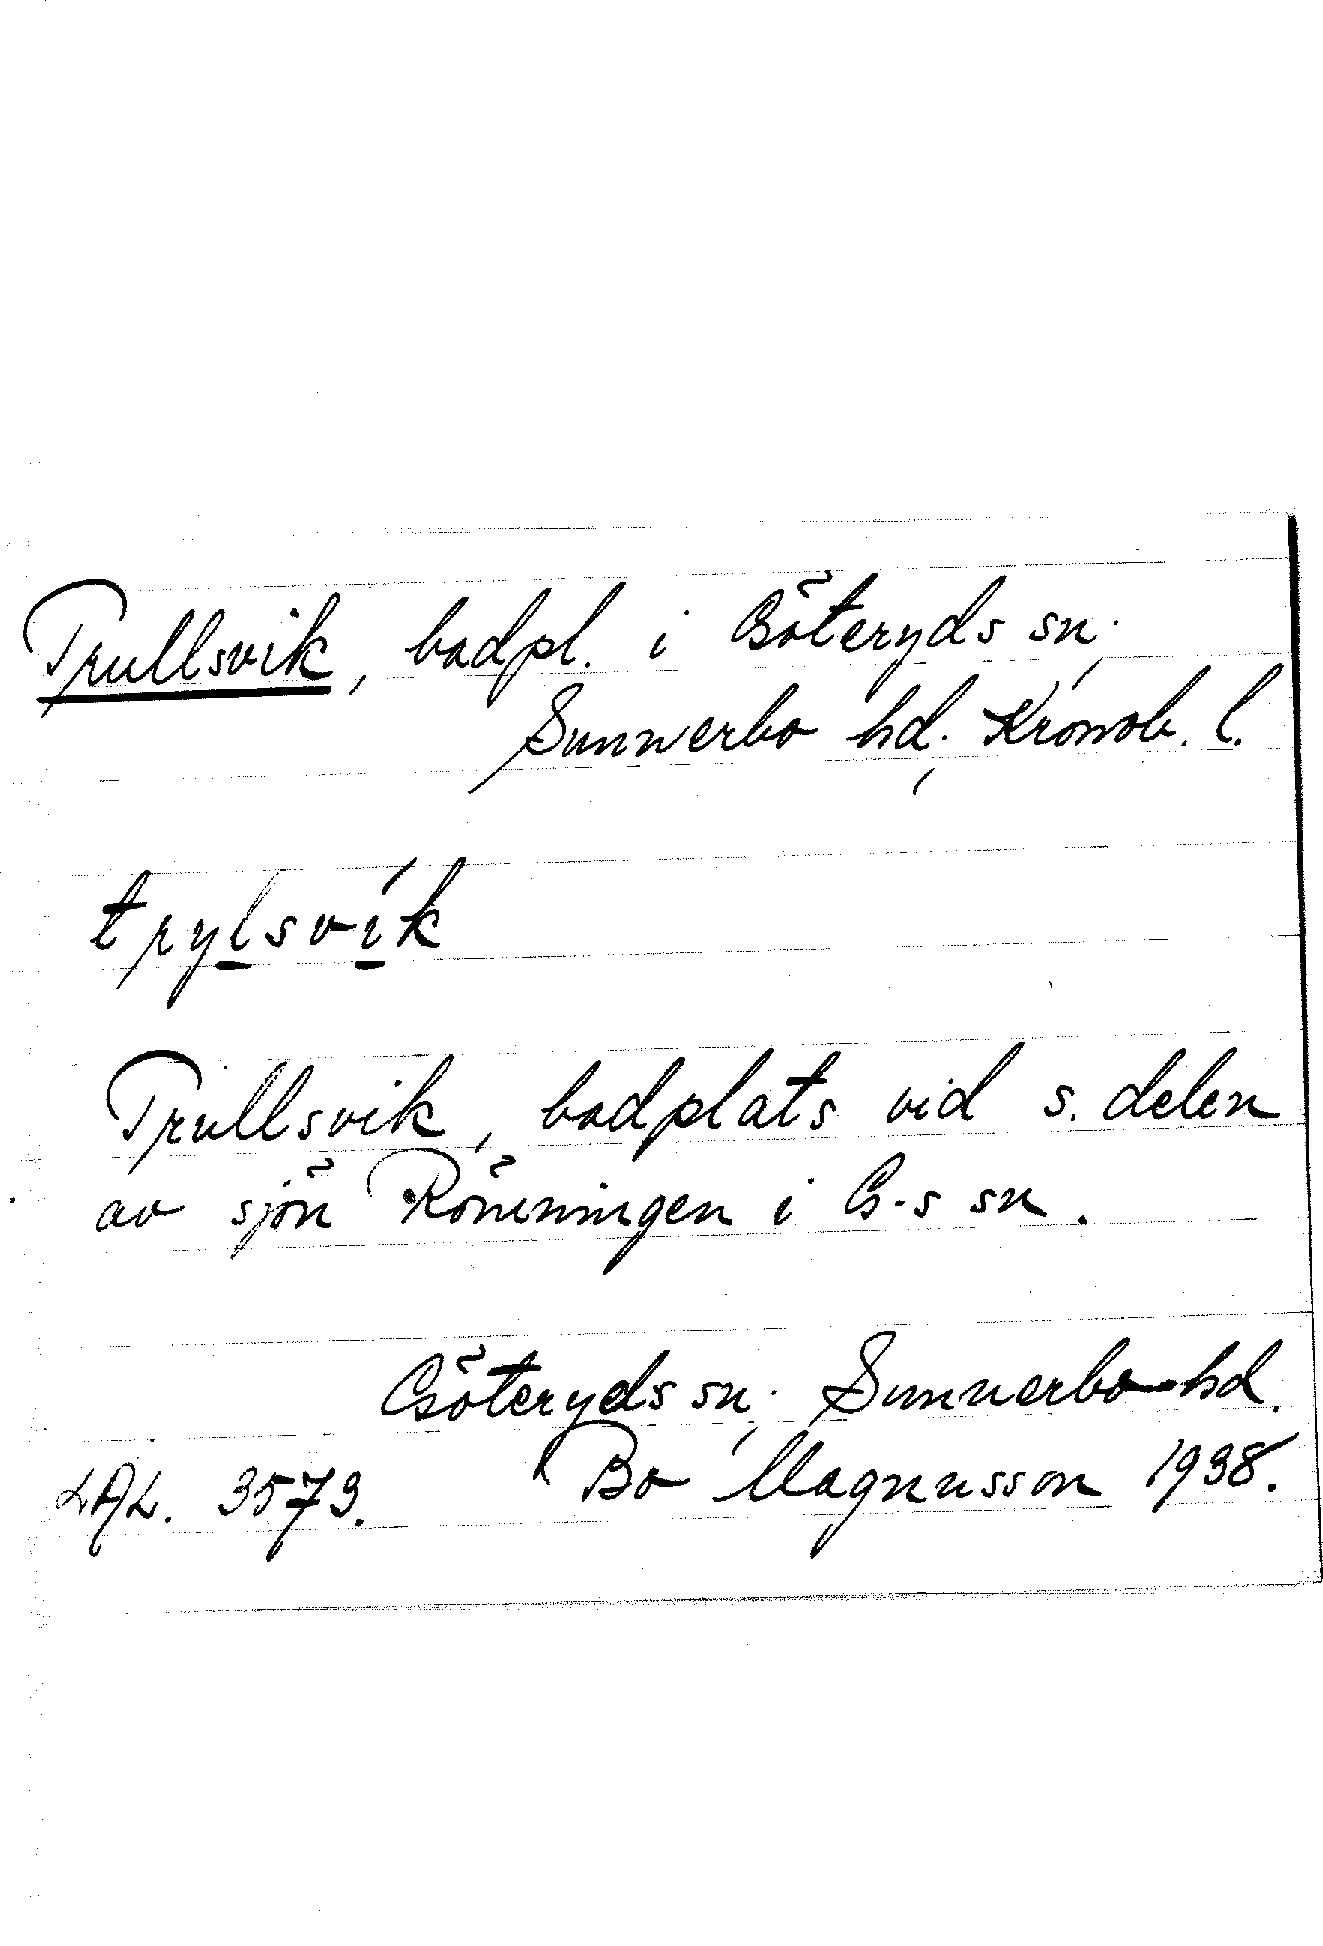 Trullsvik, badpl. i Göteryds sn;
Sunnerbo hd; Kronob. l.
trylsvik
Trullsvik, badplats vid s. delen
av sjön Römningen i G-s sn.
Göteryds sn; Sunnerbo hd.
LAL. 3573. Bo Magnusson 1938.